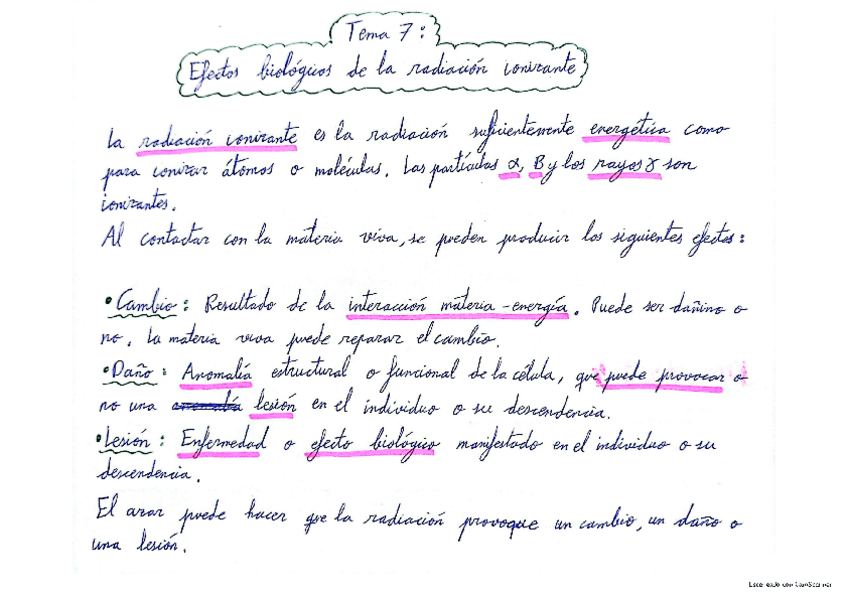 Tema 7:
Efectos biológicos de la radiación ionizante
La radiación ionizante es la radiación suficientemente energética como
para ionizar átomos o moléculas. Las partículas α, B y los rayos γ son
ionizantes.
Al contactar con la materia viva, se pueden producir los siguientes efectos:
• Cambio: Resultado de la interacción materia-energía. Puede ser dañino o
no. La materia viva puede reparar el cambio.
• Daño: Anomalía estructural o funcional de la célula, que puede provocar o
no una anomalía lesión en el individuo o su descendencia.
• Lesión: Enfermedad o efecto biológico manifestado en el individuo o su
descendencia.
El azar puede hacer que la radiación provoque un cambio, un daño o
una lesión.
Escaneado con CamScanner